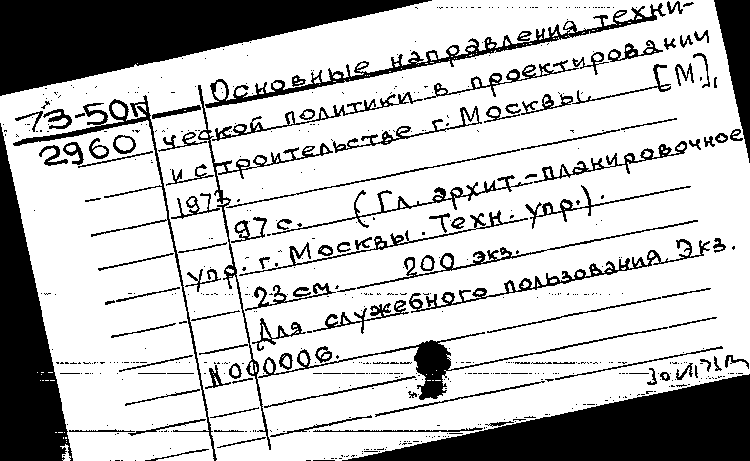 73-50п
2960
Основные направления техни-
ческой политики в проектировании
и строительстве г. Москвы. [М.],
1973.
97 с. (Гл. архит.-планировочное
упр. г. Москвы. Техн. упр.).
23 см. 200 экз.
Для служебного пользования. Экз.
N 000006.